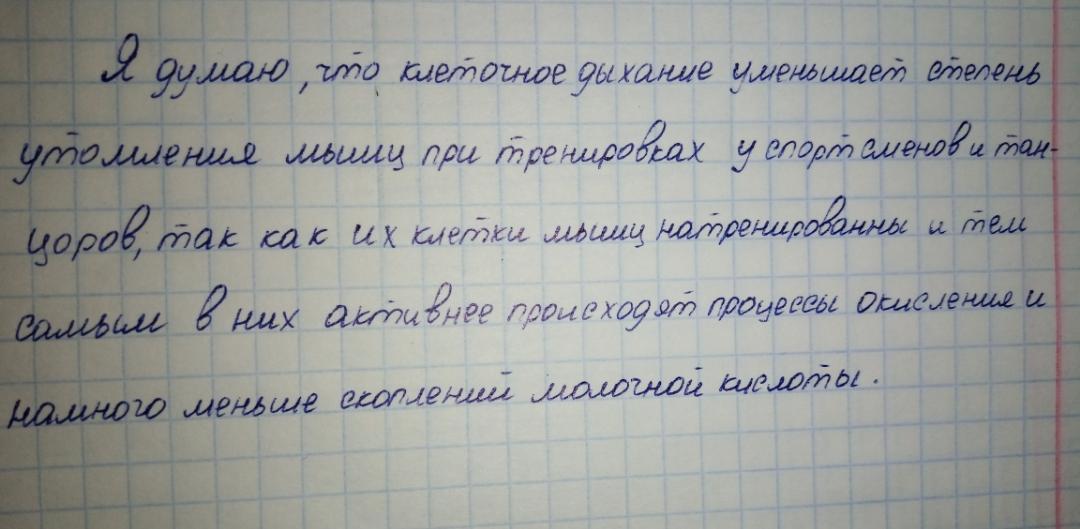 Я думаю, что клеточное дыхание уменьшает степень
утомления мышц при тренировках у спортсменов и тан-
цоров, так как их клетки мышц натренированны и тем
самым в них активнее происходят процессы окисления и
намного меньше скоплений молочной кислоты.